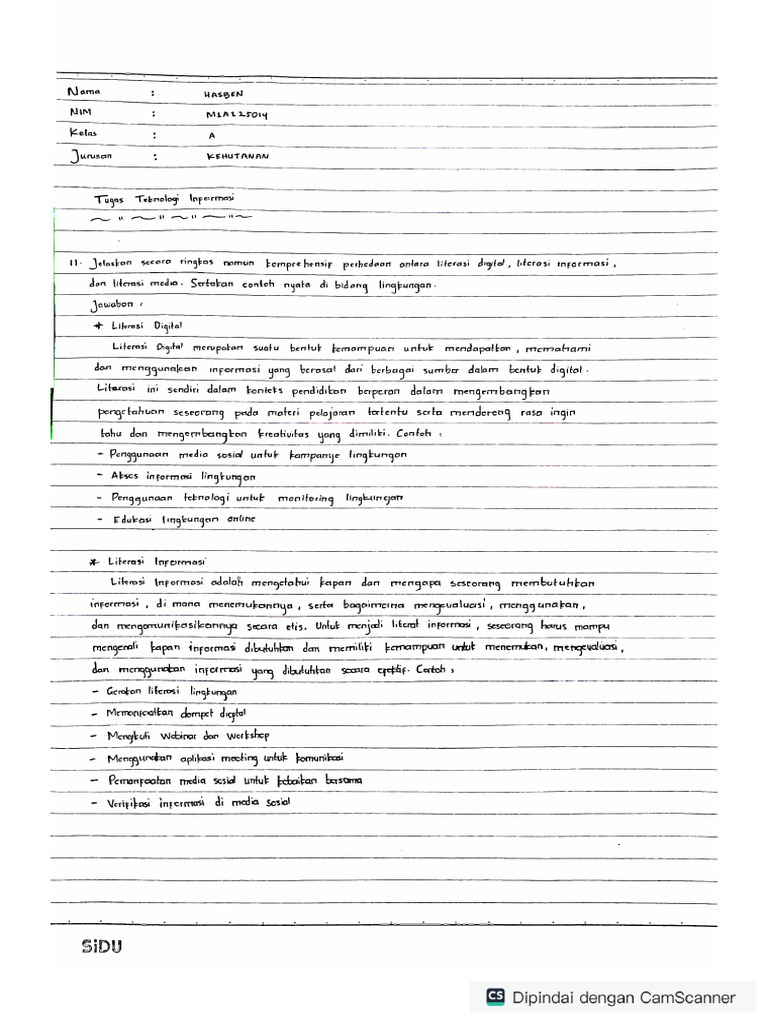 Nama : HASBEN
NIM : M1A125014
Kelas : A
Jurusan : KEHUTANAN
Tugas Teknologi Informasi
11. Jelaskan secara ringkas namun komprehensif perbedaan antara literasi digital, literasi informasi,
dan literasi media. Sertakan contoh nyata di bidang lingkungan.
Jawaban :
* Literasi Digital
Literasi Digital merupakan suatu bentuk kemampuan untuk mendapatkan, memahami
dan menggunakan informasi yang berasal dari berbagai sumber dalam bentuk digital.
Literasi ini sendiri dalam konteks pendidikan berperan dalam mengembangkan
pengetahuan seseorang pada materi pelajaran tertentu serta mendorong rasa ingin
tahu dan mengembangkan kreativitas yang dimiliki. Contoh :
- Penggunaan media sosial untuk kampanye lingkungan
- Akses informasi lingkungan
- Penggunaan teknologi untuk monitoring lingkungan
- Edukasi lingkungan online
* Literasi Informasi
Literasi Informasi adalah mengetahui kapan dan mengapa seseorang membutuhkan
informasi, di mana menemukannya, serta bagaimana mengevaluasi, menggunakan,
dan mengomunikasikannya secara etis. Untuk menjadi literat informasi, seseorang harus mampu
mengenali kapan informasi dibutuhkan dan memiliki kemampuan untuk menemukan, mengevaluasi,
dan menggunakan informasi yang dibutuhkan secara efektif. Contoh :
- Gerakan literasi lingkungan
- Memanfaatkan dompet digital
- Mengikuti Webinar dan Workshop
- Menggunakan aplikasi meeting untuk komunikasi
- Pemanfaatan media sosial untuk kebaikan bersama
- Verifikasi informasi di media sosial
SiDU
CS Dipindai dengan CamScanner